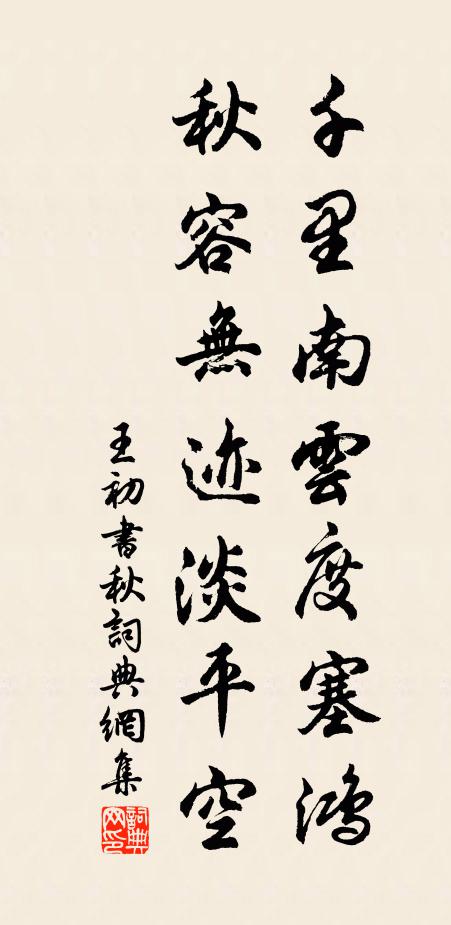 千里南雲度塞鴻
秋容無迹淡平空
王初書秋詞典網集
詞典網印